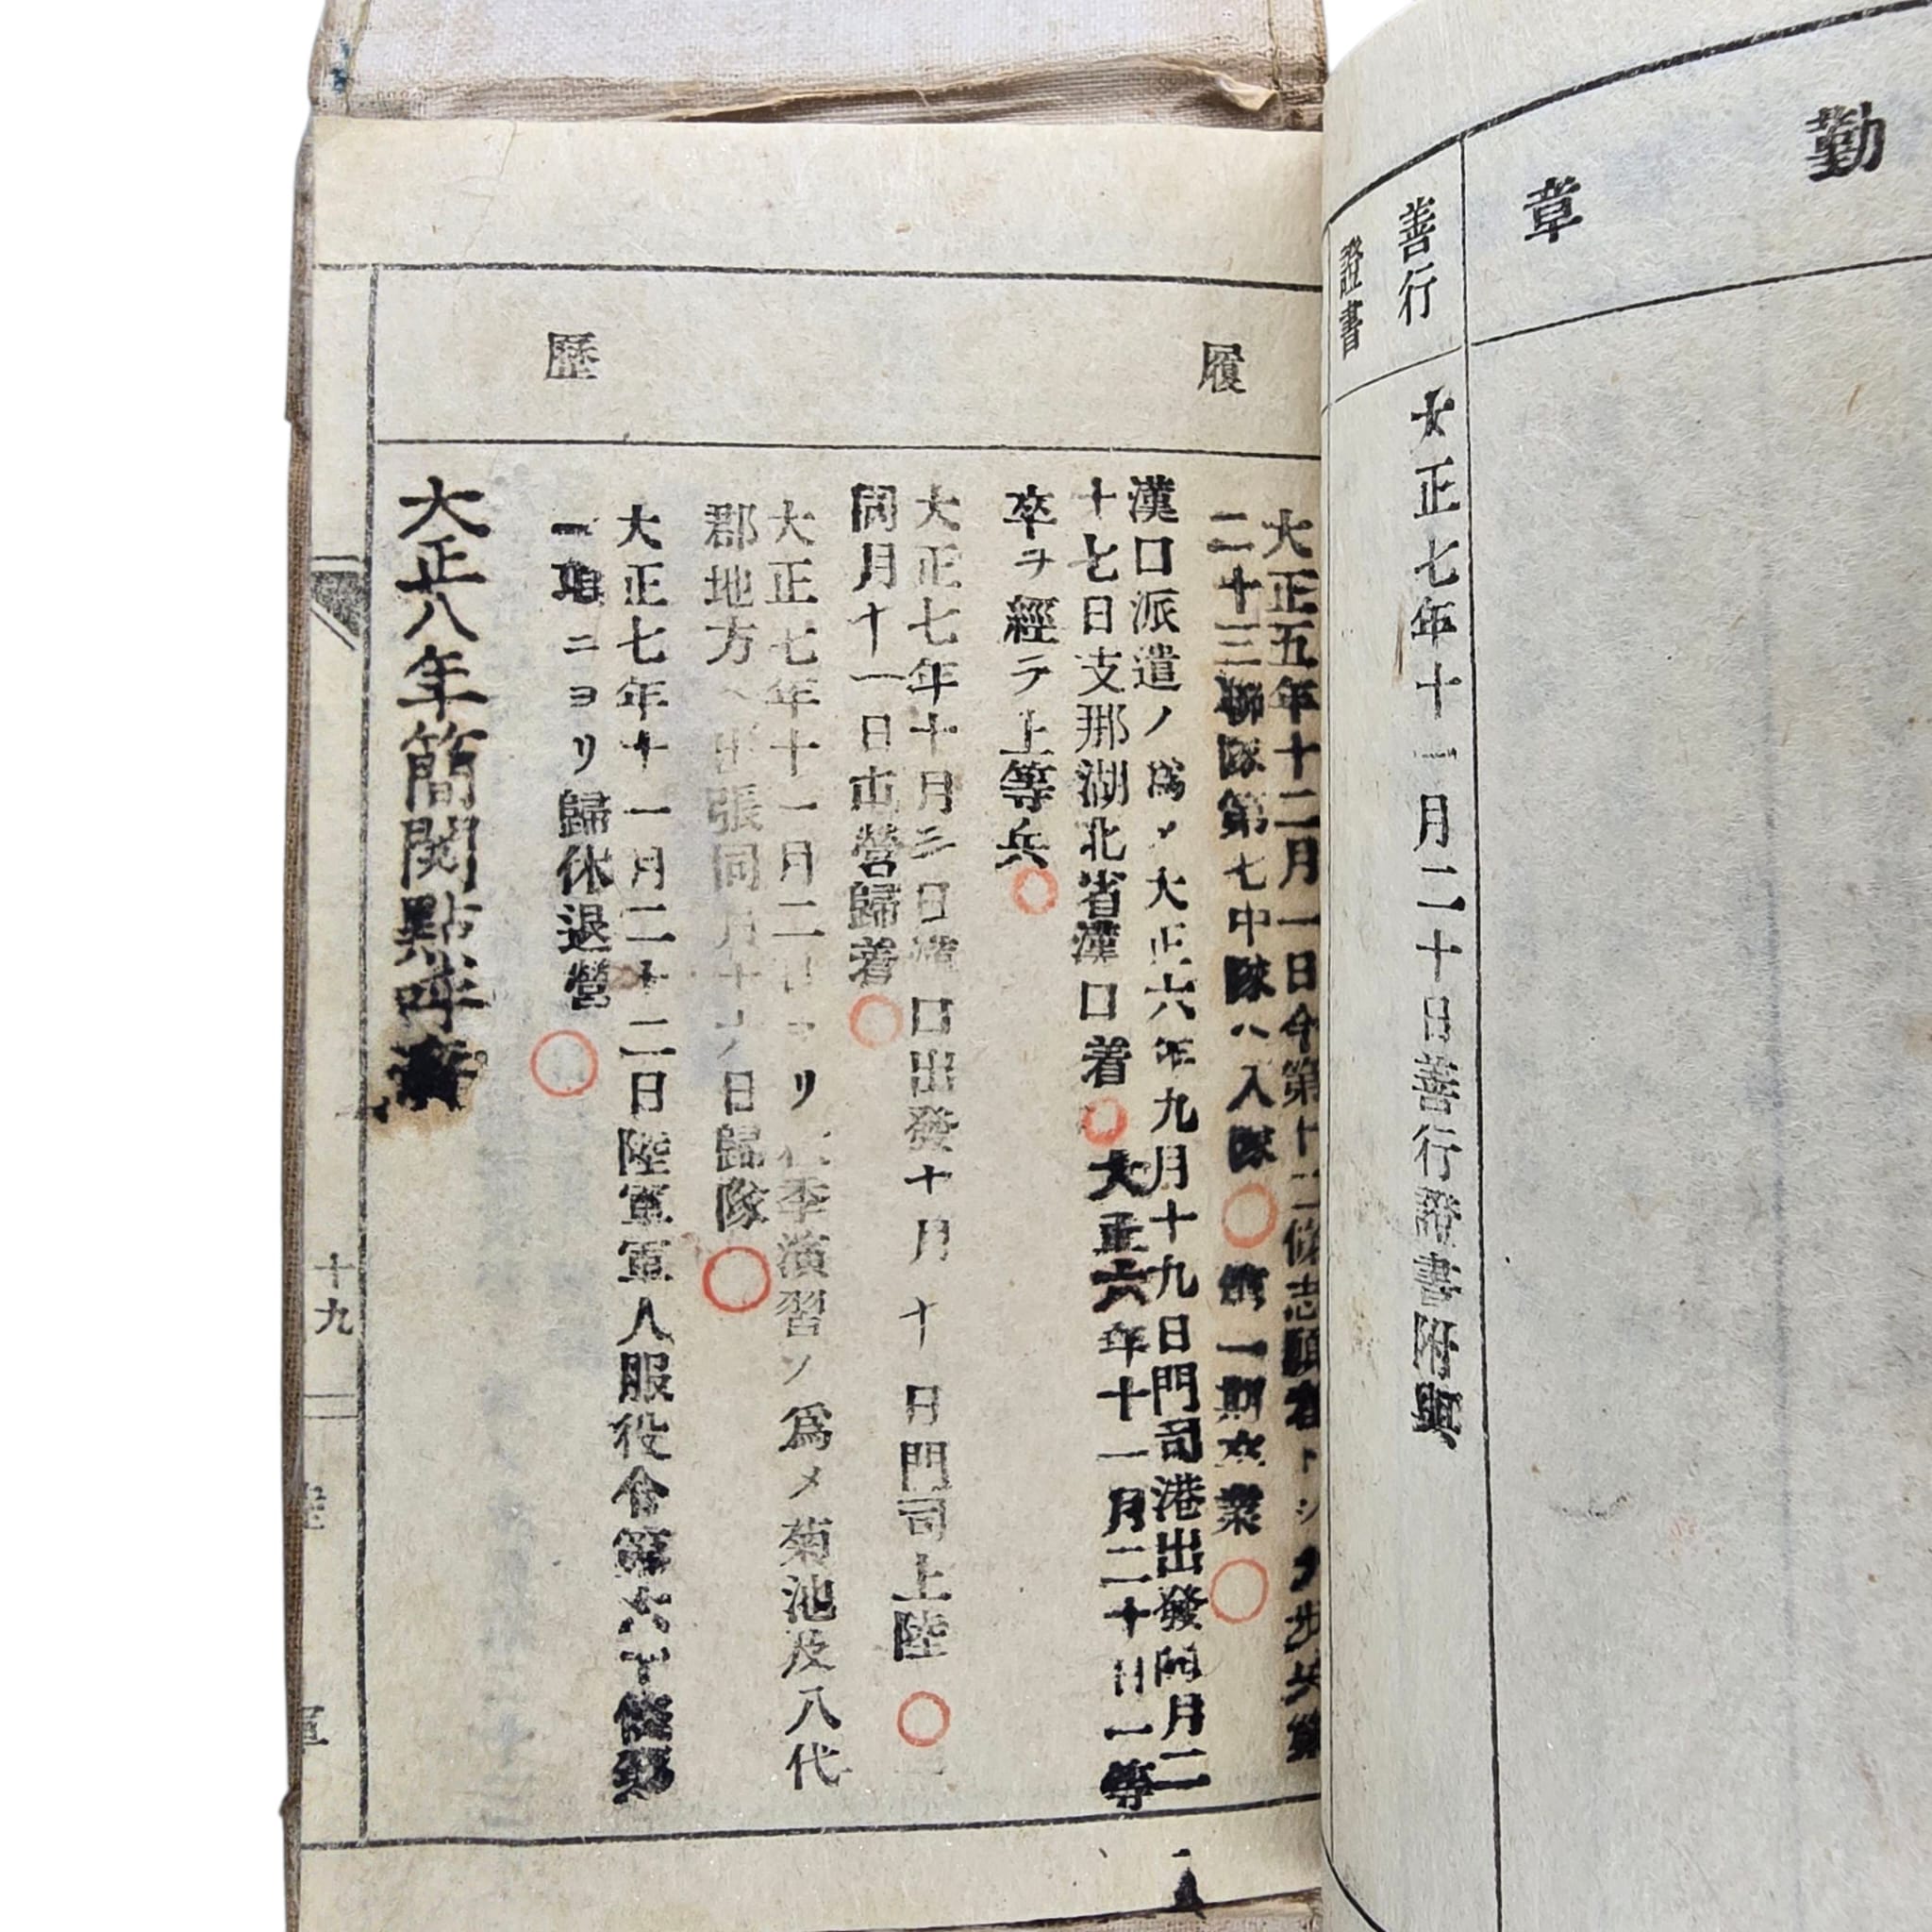 勤
章
善行
證書
大正七年十一月二十日善行證書附與
履
歷
大正五年十二月一日令第十二條志願者トシテ步兵第
二十三聯隊第七中隊ヘ入隊○第一期卒業○
漢口派遣ノ為メ大正六年九月十九日門司港出發同月二
十七日支那湖北省漢口着○大正六年十一月二十日一等
卒ヲ經テ上等兵○
大正七年十月三日漢口出發十月十日門司上陸○
同月十一日屯營歸着○
大正七年十一月二日ヨリ秋季演習ノ為メ菊池及八代
郡地方ヘ出張同月十八日歸隊○
大正七年十一月二十二日陸軍軍人服役令第六十條第
一項ニヨリ歸休退營○
大正八年簡閱點呼濟
十九
陸
軍